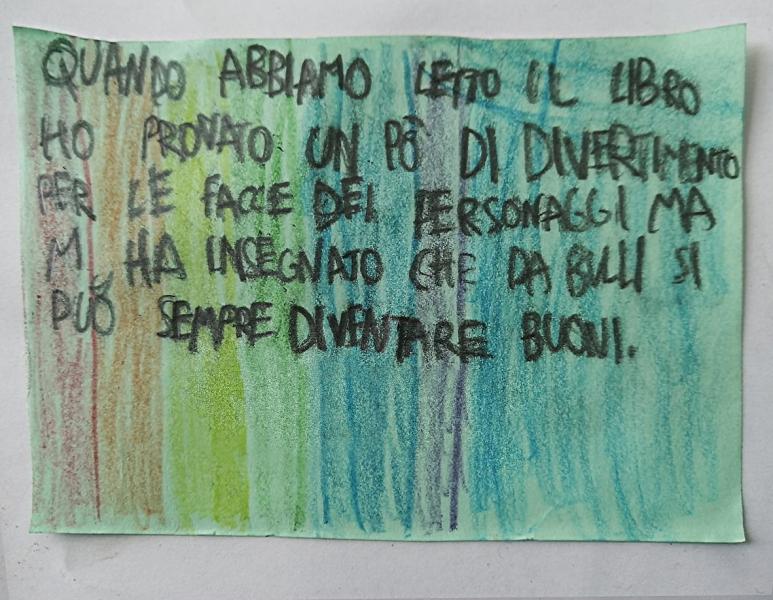 QUANDO ABBIAMO LETTO IL LIBRO
HO PROVATO UN PÒ DI DIVERTIMENTO
PER LE FACCE DEI PERSONAGGI MA
MI HA INSEGNATO CHE DA BULLI SI
PUÒ SEMPRE DIVENTARE BUONI.